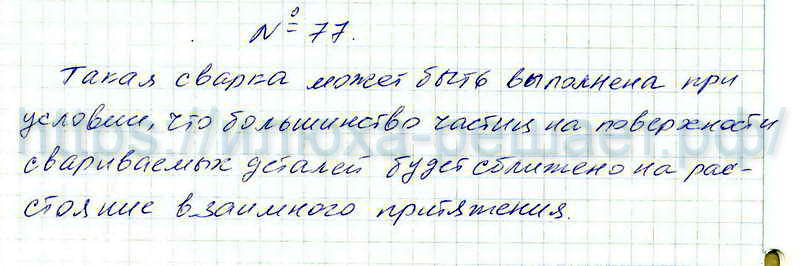 № 77.
Такая сварка может быть выполнена при
условии, что большинство частиц на поверхности
свариваемых деталей будет сближено на рас-
стояние взаимного притяжения.